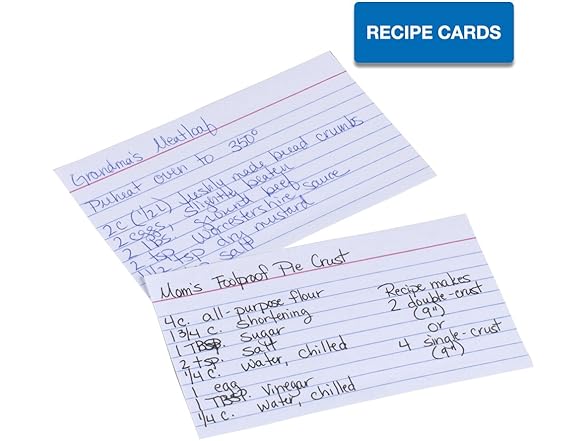 RECIPE CARDS
Grandma's Meatloaf
Preheat oven to 350°
2c (1/2 L) freshly made bread crumbs
2 eggs, slightly beaten
2 lbs. ground beef
2 tsp Worcestershire sauce
1/2 tsp dry mustard
salt
Mom's Foolproof Pie Crust
4c. all-purpose flour
1 3/4 c. shortening
1 TBSP. sugar
2 tsp. salt
1/4 c. water, chilled
1 egg
1 TBSP. vinegar
1/4 c. water, chilled
Recipe makes
2 double-crust
(9")
or
4 single-crust
(9")